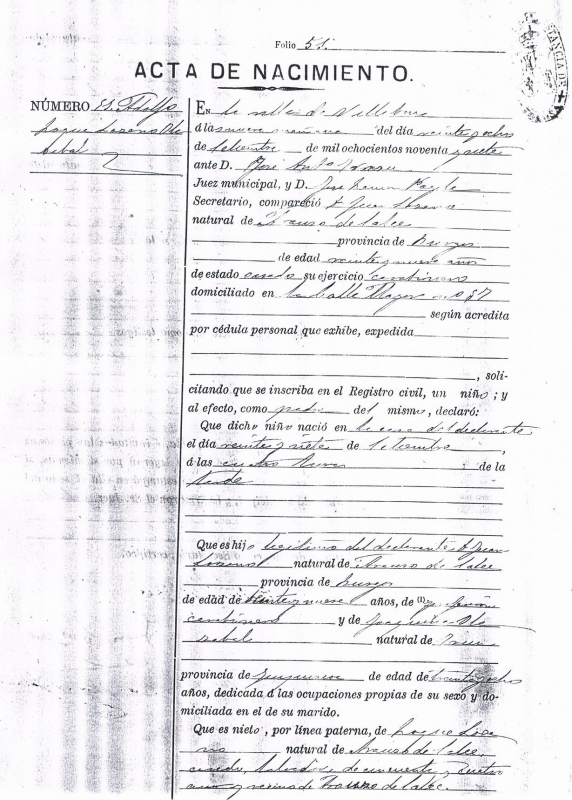 Folio 51.
ACTA DE NACIMIENTO.
NÚMERO 51. Adolfo
Roque Lozano Ola
zabal
EN la villa de
á las nueve mañana del día veinte y ocho
de Setiembre de mil ochocientos noventa y siete
ante D. José
Juez municipal, y D. José
Secretario, compareció D. Juan Lozano
natural de Arauzo de Salce
provincia de Burgos
de edad veinte y nueve años
de estado casado su ejercicio carabinero
domiciliado en la Calle Mayor nº 87
según acredita
por cédula personal que exhibe, expedida
, soli-
citando que se inscriba en el Registro civil, un niño; y
al efecto, como padre del mismo, declaró:
Que dicho niño nació en la casa del declarante
el día veinte y siete de Setiembre,
á las cuatro horas de la
tarde
Que es hijo legitimo del declarante D. Juan
Lozano natural de Arauzo de Salce
provincia de Burgos
de edad de veinte y nueve años, de (1)
carabinero y de Joaquina Ola
zabal natural de Irun
provincia de Guipuzcoa de edad de veinte y ocho
años, dedicada á las ocupaciones propias de su sexo y do-
miciliada en el de su marido.
Que es nieto, por línea paterna, de Roque Loza
no natural de Arauzo de Salce
casado, labrador, de cincuenta y cuatro
años y vecino de Arauzo de Salce.